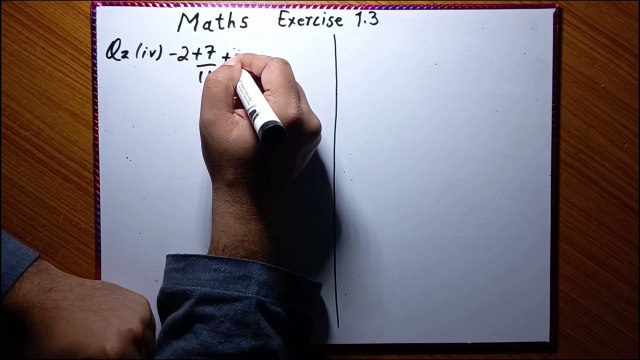 Maths Exercise 1.3
Q2 (iv) -2 + 7 +